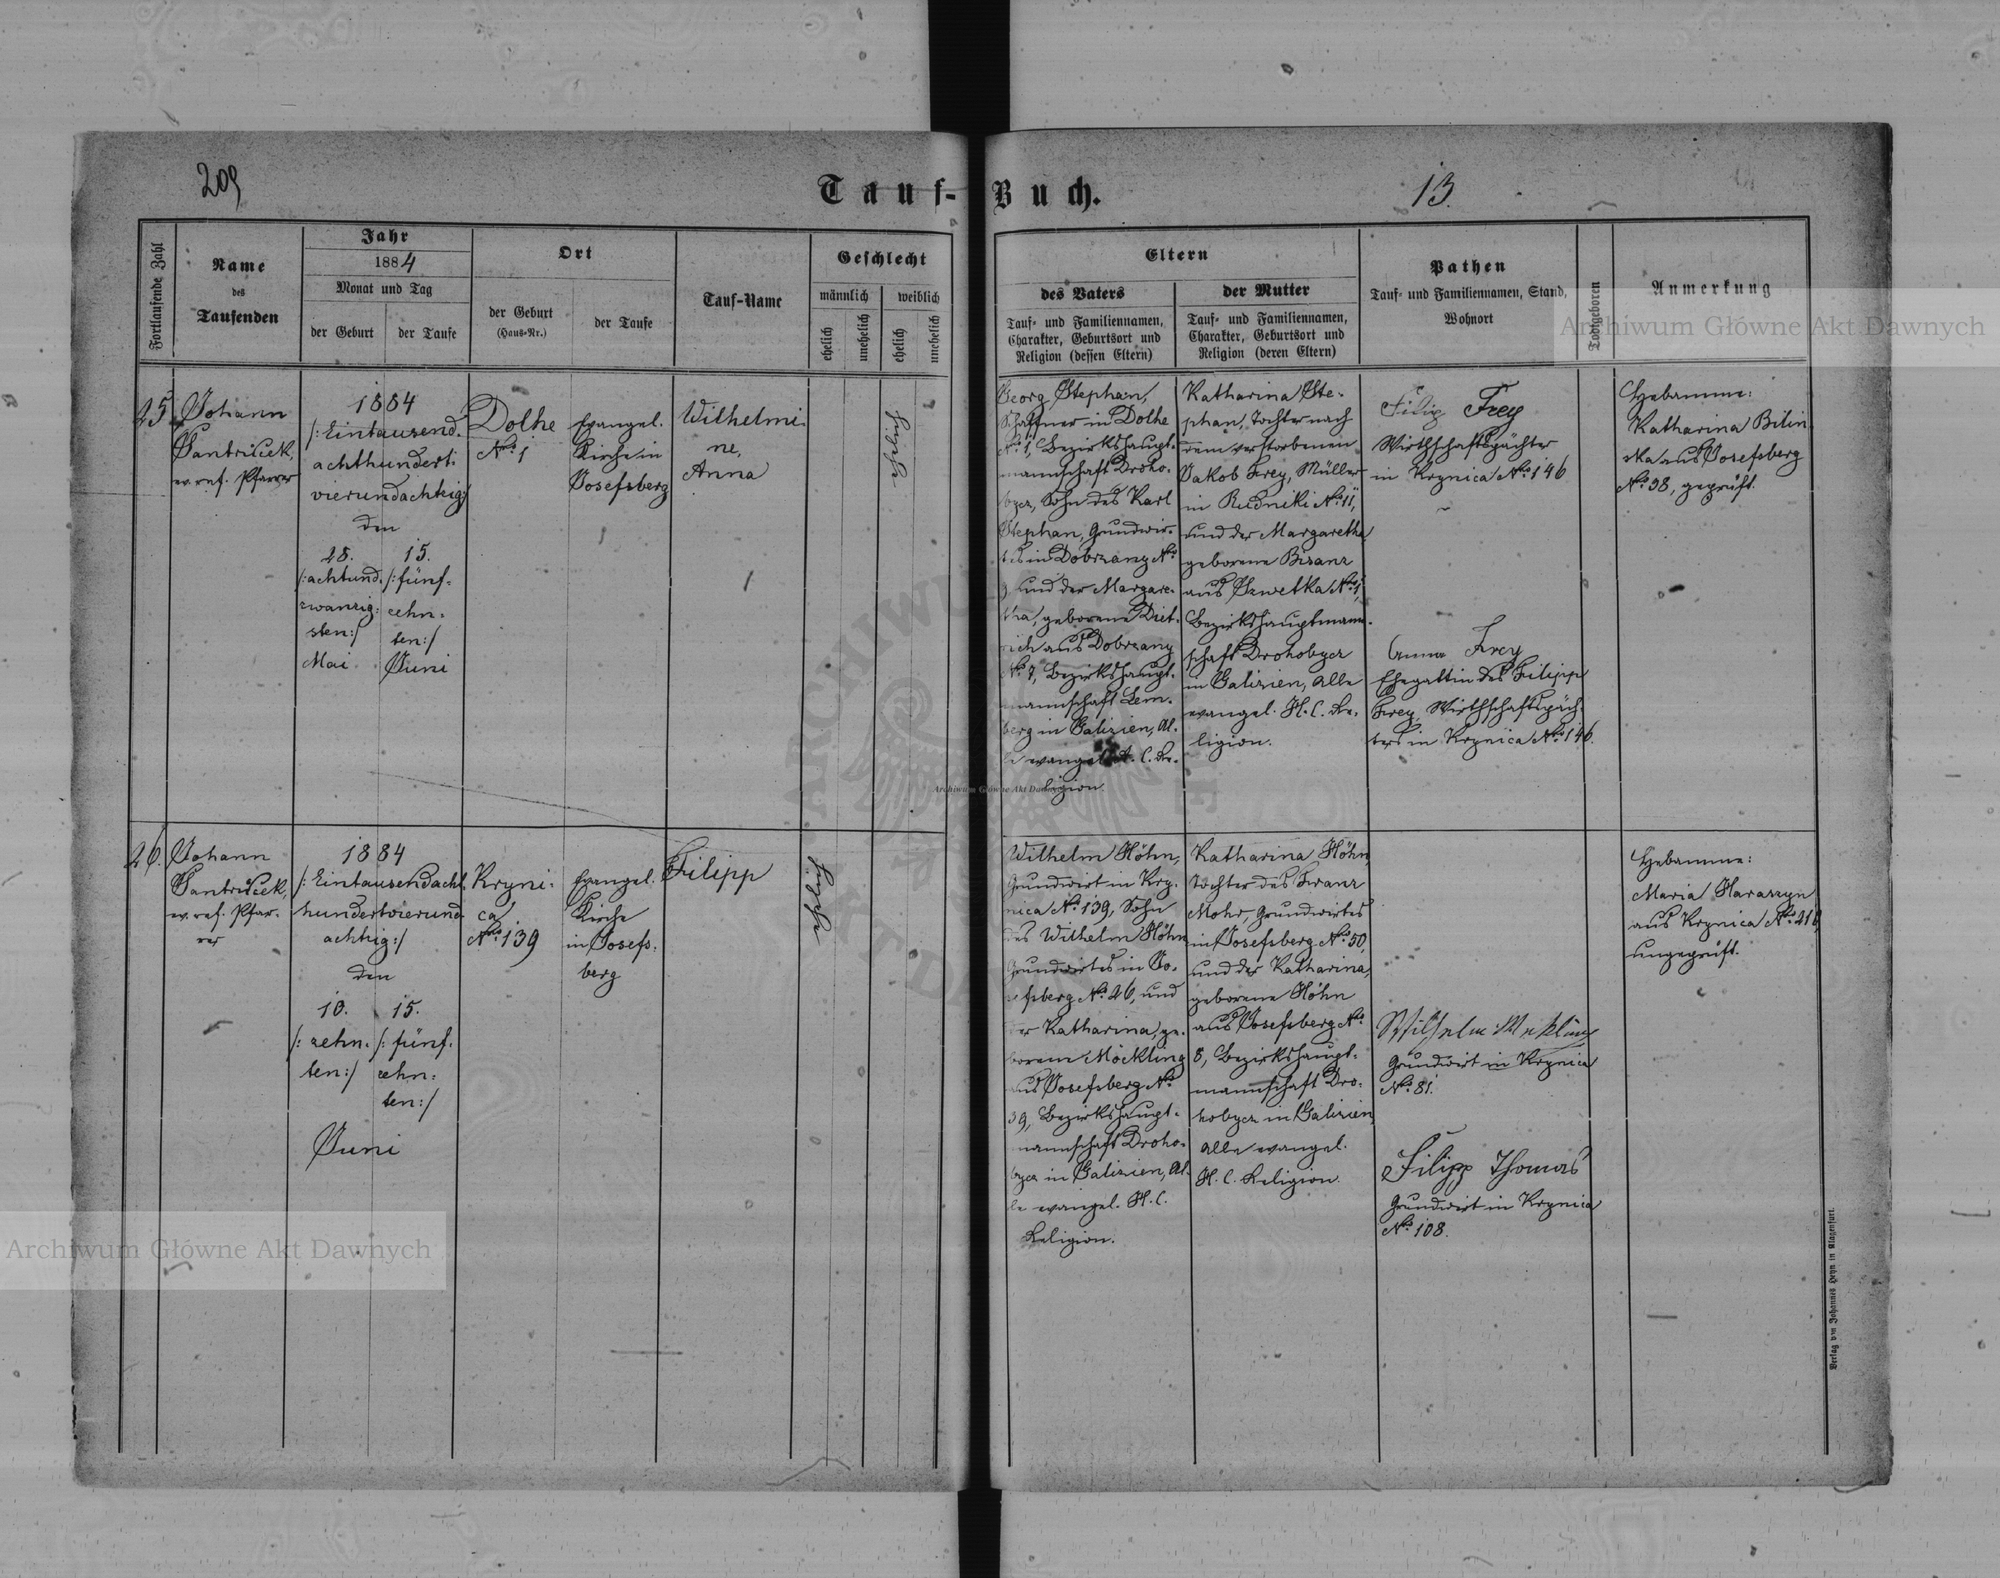 209
Tauf-Buch.
13.
Fortlaufende Zahl
Name
des
Taufenden
Jahr
1884
Monat und Tag
der Geburt
der Taufe
Ort
der Geburt
(Haus-Nr.)
der Taufe
Tauf-Name
Geschlecht
männlich
weiblich
ehelich
unehelich
ehelich
unehelich
Eltern
des Vaters
Tauf- und Familiennamen,
Charakter, Geburtsort und
Religion (dessen Eltern)
der Mutter
Tauf- und Familiennamen,
Charakter, Geburtsort und
Religion (deren Eltern)
Pathen
Tauf- und Familiennamen, Stand,
Wohnort
Todtgeboren
Anmerkung
25
Johann
ev. ref. Pfarrer
1884
/: Eintausend
achthundert
vierundachtzig:/
den
28.
/:achtund
zwanzig
sten:/
Mai
15.
/:fünf-
zehn-
ten:/
Juni
Dolhe
No. 1
Evangel.
Kirche in
Josefsberg
Wilhelmi-
ne,
Anna
Georg Stephan,
Schaffner in Dolhe
No. 1, Bezirkshaupt-
mannschaft Droho-
bycz, Sohn des Karl
Stephan, Grundwir-
tes in Dobrzany No.
und der Margare-
tha, geborene Diet-
rich aus Dobrzany
No. 7, Bezirkshaupt-
mannschaft Lem-
berg in Galizien, Al-
le evangel. C. Re-
ligion
Katharina Ste-
phan, Tochter nach
dem verstorbenen
Jakob Frey, Müller
in Rudniki No. 11,
und der Margaretha
geborene Bisanz
aus No. 1,
Bezirkshauptmann-
schaft Drohobycz
in Galizien, Alle
evangel. H. C. Re-
ligion.
Filip Frey
Wirthschaftspächter
in Krynica No. 146
Anna Frey
Ehegattin des Filipp
Frey, Wirthschaftspäch-
ters in Krynica No. 146.
Hebamme:
Katharina Bilin-
ska aus Josefsberg
No. 38, geprüft.
26.
Johann
ev. ref. Pfar-
rer
1884
/: Eintausendacht
hundertvierund
achtzig:/
den
10.
/: zehn-
ten:/
15.
/: fünf-
zehn-
ten:/
Juni
Kryni-
ca
No. 139
Evangel.
Kirche
in Josefs-
berg
Filipp
Wilhelm Höhn,
Grundwirt in Kry-
nica No. 139, Sohn
des Wilhelm Höhn
Grundwirtes in Jo-
sefsberg No. 26, und
der Katharina, ge-
borene Möckling
aus Josefsberg No.
39, Bezirkshaupt-
mannschaft Droho-
bycz in Galizien, Al-
le evangel. H. C.
Religion.
Katharina Höhn
Tochter des Franz
Mohr, Grundwirtes
in Josefsberg No. 50,
und der Katharina,
geborene Höhn
aus Josefsberg No.
8, Bezirkshaupt-
mannschaft Dro-
hobycz in Galizien
Alle evangel.
H. C. Religion.
Wilhelm
Grundwirt in Krynica
No. 81.
Filipp Thomas
Grundwirt in Krynica
No. 108.
Hebamme:
Maria Haraszyn
aus Krynica No.
ungeprüft.
Verlag von Johannes Heyn in Klagenfurt.
Archiwum Główne Akt Dawnych
Archiwum Główne Akt Dawnych
Archiwum Główne Akt Dawnych